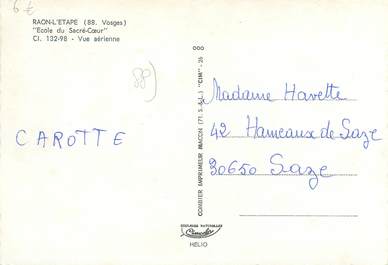 6 €
RAON-L'ETAPE (88. Vosges)
"Ecole du Sacré-Cœur"
Cl. 132-98 - Vue aérienne
88)
CAROTTE
COMBIER IMPRIMEUR MACON (71. S.-&-L.) "CIM" - 26
Madame Havette
42 Hameaux de Saze
30650 Saze
HELIO